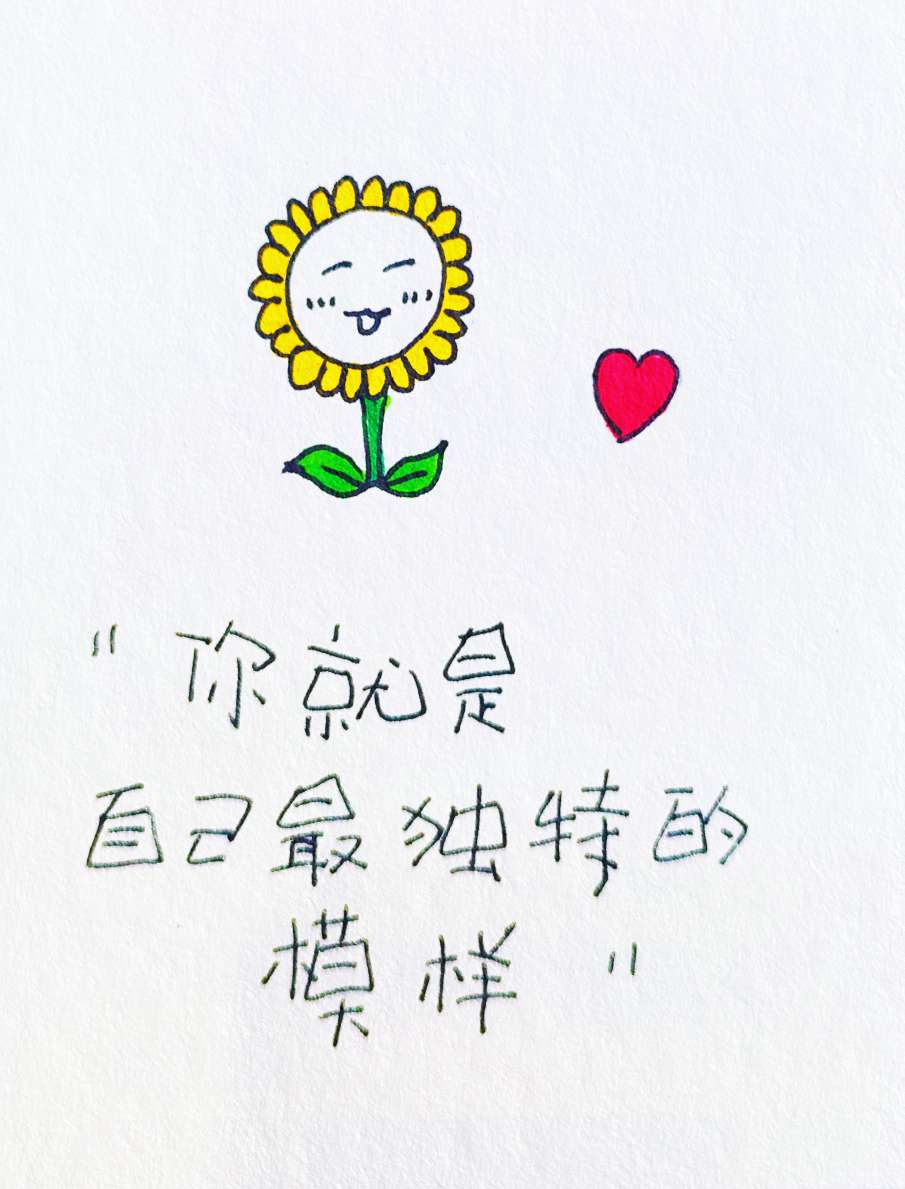 "你就是
自己最独特的
模样"